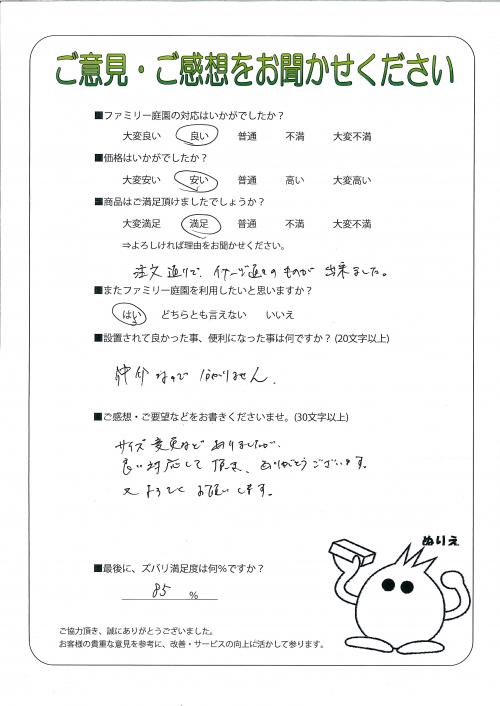 ご意見・ご感想をお聞かせください
■ファミリー庭園の対応はいかがでしたか？
大変良い 良い 普通 不満 大変不満
■価格はいかがでしたか？
大変安い 安い 普通 高い 大変高い
■商品はご満足頂けましたでしょうか？
大変満足 満足 普通 不満 大変不満
⇒よろしければ理由をお聞かせください。
注文通りで、イメージ通りのものが出来ました。
■またファミリー庭園を利用したいと思いますか？
はい どちらとも言えない いいえ
■設置されて良かった事、便利になった事は何ですか？(20文字以上)
仲介なので分かりません。
■ご感想・ご要望などをお書きくださいませ。(30文字以上)
サイズ変更などありましたが、
良い対応して頂き、ありがとうございます。
又よろしくお願いします。
ぬりえ
■最後に、ズバリ満足度は何%ですか？
85 %
ご協力頂き、誠にありがとうございました。
お客様の貴重な意見を参考に、改善・サービスの向上に活かして参ります。